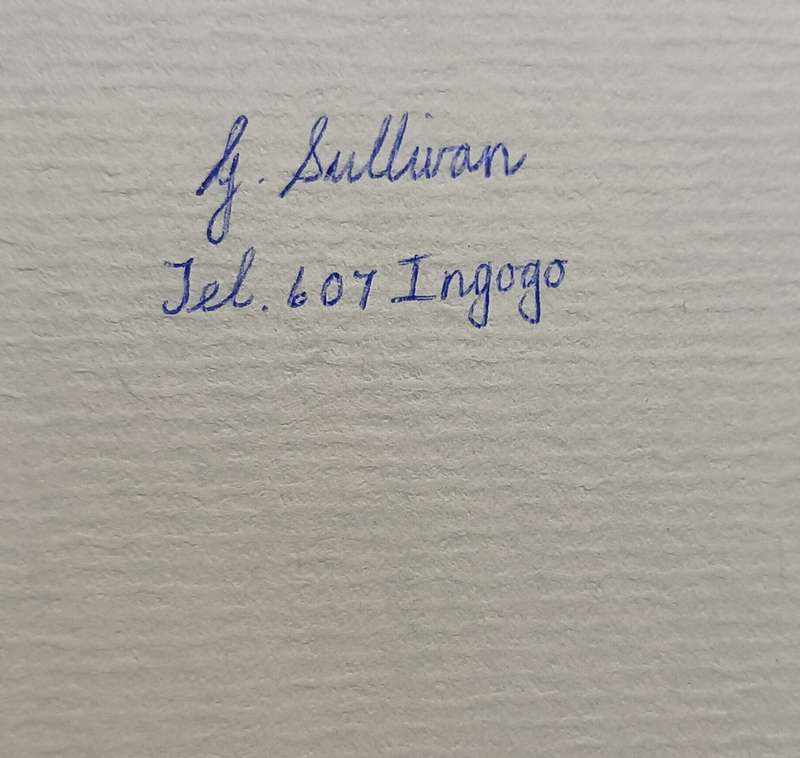 G. Sullivan
Tel. 607 Ingogo